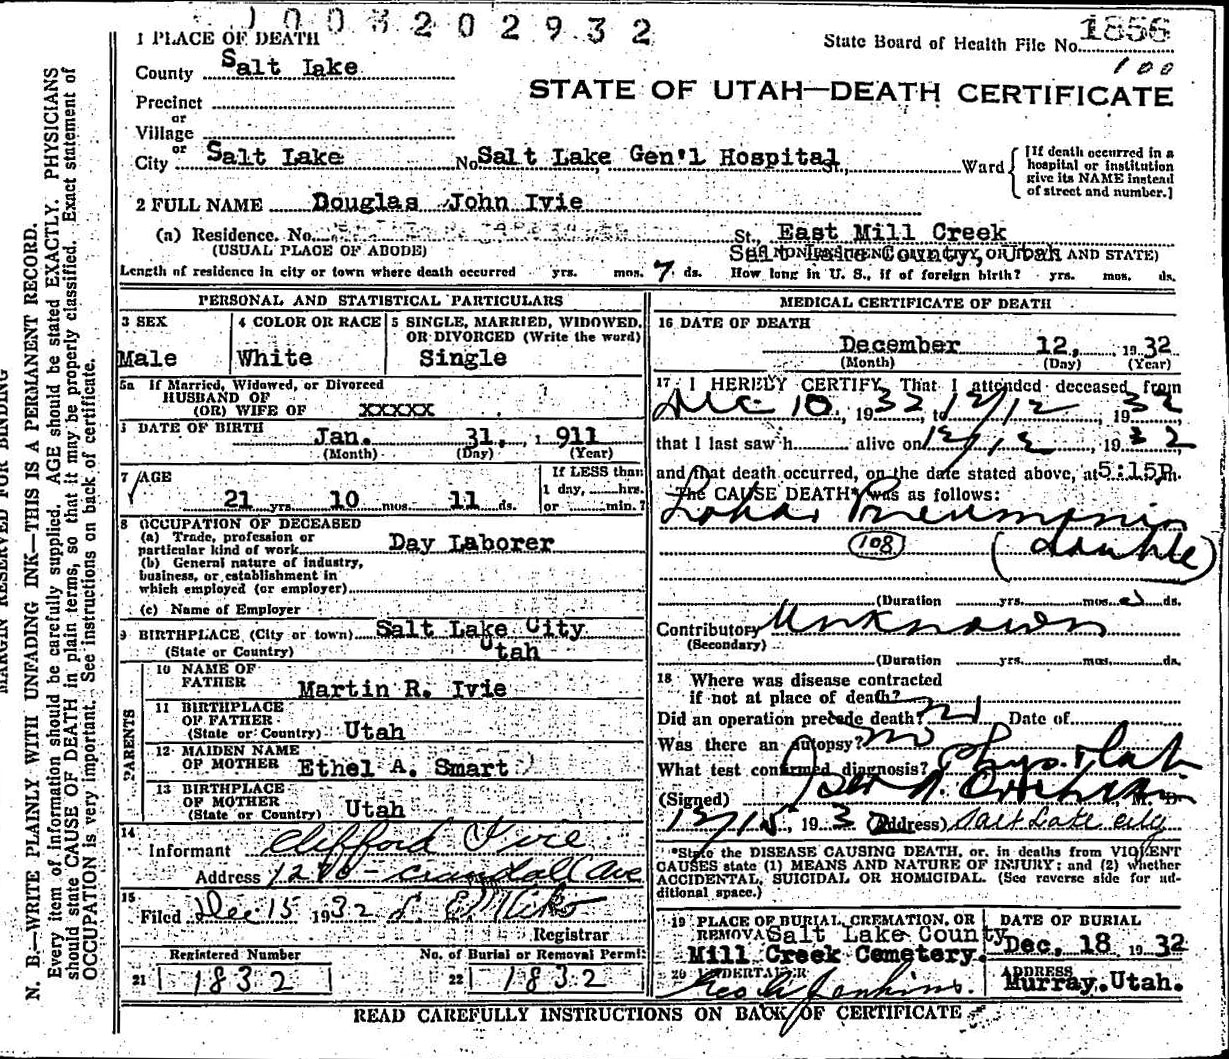 1003202932
1856
1 PLACE OF DEATH
State Board of Health File No.
100
County Salt Lake
STATE OF UTAH—DEATH CERTIFICATE
Precinct
or
Village
or
City Salt Lake No. Salt Lake Gen'l Hospital St., Ward
[If death occurred in a
hospital or institution
give its NAME instead
of street and number.]
2 FULL NAME Douglas John Ivie
(a) Residence. No. St. East Mill Creek
(USUAL PLACE OF ABODE)
Salt Lake County, Utah AND STATE)
Length of residence in city or town where death occurred yrs. mos. 7 ds. How long in U. S., if of foreign birth? yrs. mos. ds.
PERSONAL AND STATISTICAL PARTICULARS
3 SEX
Male
4 COLOR OR RACE
White
5 SINGLE, MARRIED, WIDOWED,
OR DIVORCED (Write the word)
Single
5a If Married, Widowed, or Divorced
HUSBAND OF
(OR) WIFE OF XXXXX
DATE OF BIRTH
Jan. 31, 1911
(Month) (Day) (Year)
7 AGE
21 yrs. 10 mos. 11 ds.
If LESS than
1 day, hrs.
or min.?
8 OCCUPATION OF DECEASED
(a) Trade, profession or
particular kind of work Day Laborer
(b) General nature of industry,
business, or establishment in
which employed (or employer)
(c) Name of Employer
9 BIRTHPLACE (City or town) Salt Lake City
(State or Country) Utah
PARENTS
10 NAME OF
FATHER Martin R. Ivie
11 BIRTHPLACE
OF FATHER
(State or Country) Utah
12 MAIDEN NAME
OF MOTHER Ethel A. Smart
13 BIRTHPLACE
OF MOTHER
(State or Country) Utah
14
Informant Clifford Ivie
Address Crandall Ave
15
Filed Dec 15 1932
Registrar
Registered Number
21 1832
No. of Burial or Removal Permit
22 1832
MEDICAL CERTIFICATE OF DEATH
16 DATE OF DEATH
December 12, 1932
(Month) (Day) (Year)
17 I HEREBY CERTIFY, That I attended deceased from
Dec 10, 1932 to 12/12 1932
that I last saw h alive on 12/12 1932
and that death occurred, on the date stated above, at 5:15P.m.
The CAUSE DEATH* was as follows:
Lobar Pneumonia
108 (double)
(Duration yrs. mos. ds.
Contributory Unknown
(Secondary)
(Duration yrs. mos. ds.
18 Where was disease contracted
if not at place of death?
Did an operation precede death? Date of
Was there an autopsy? no
What test confirmed diagnosis? Phys.
(Signed) M. D.
12/15, 1932 (Address) Salt Lake City
*State the DISEASE CAUSING DEATH, or, in deaths from VIOLENT
CAUSES state (1) MEANS AND NATURE OF INJURY; and (2) whether
ACCIDENTAL, SUICIDAL OR HOMICIDAL. (See reverse side for ad-
ditional space.)
19 PLACE OF BURIAL, CREMATION, OR
REMOVAL Salt Lake County
Mill Creek Cemetery.
DATE OF BURIAL
Dec. 18 1932
20 UNDERTAKER
Geo A Jenkins.
ADDRESS
Murray, Utah.
READ CAREFULLY INSTRUCTIONS ON BACK OF CERTIFICATE
MARGIN RESERVED FOR BINDING
N. B.—WRITE PLAINLY WITH UNFADING INK—THIS IS A PERMANENT RECORD.
Every item of information should be carefully supplied. AGE should be stated EXACTLY. PHYSICIANS
should state CAUSE OF DEATH in plain terms, so that it may be properly classified. Exact statement of
OCCUPATION is very important. See instructions on back of certificate.